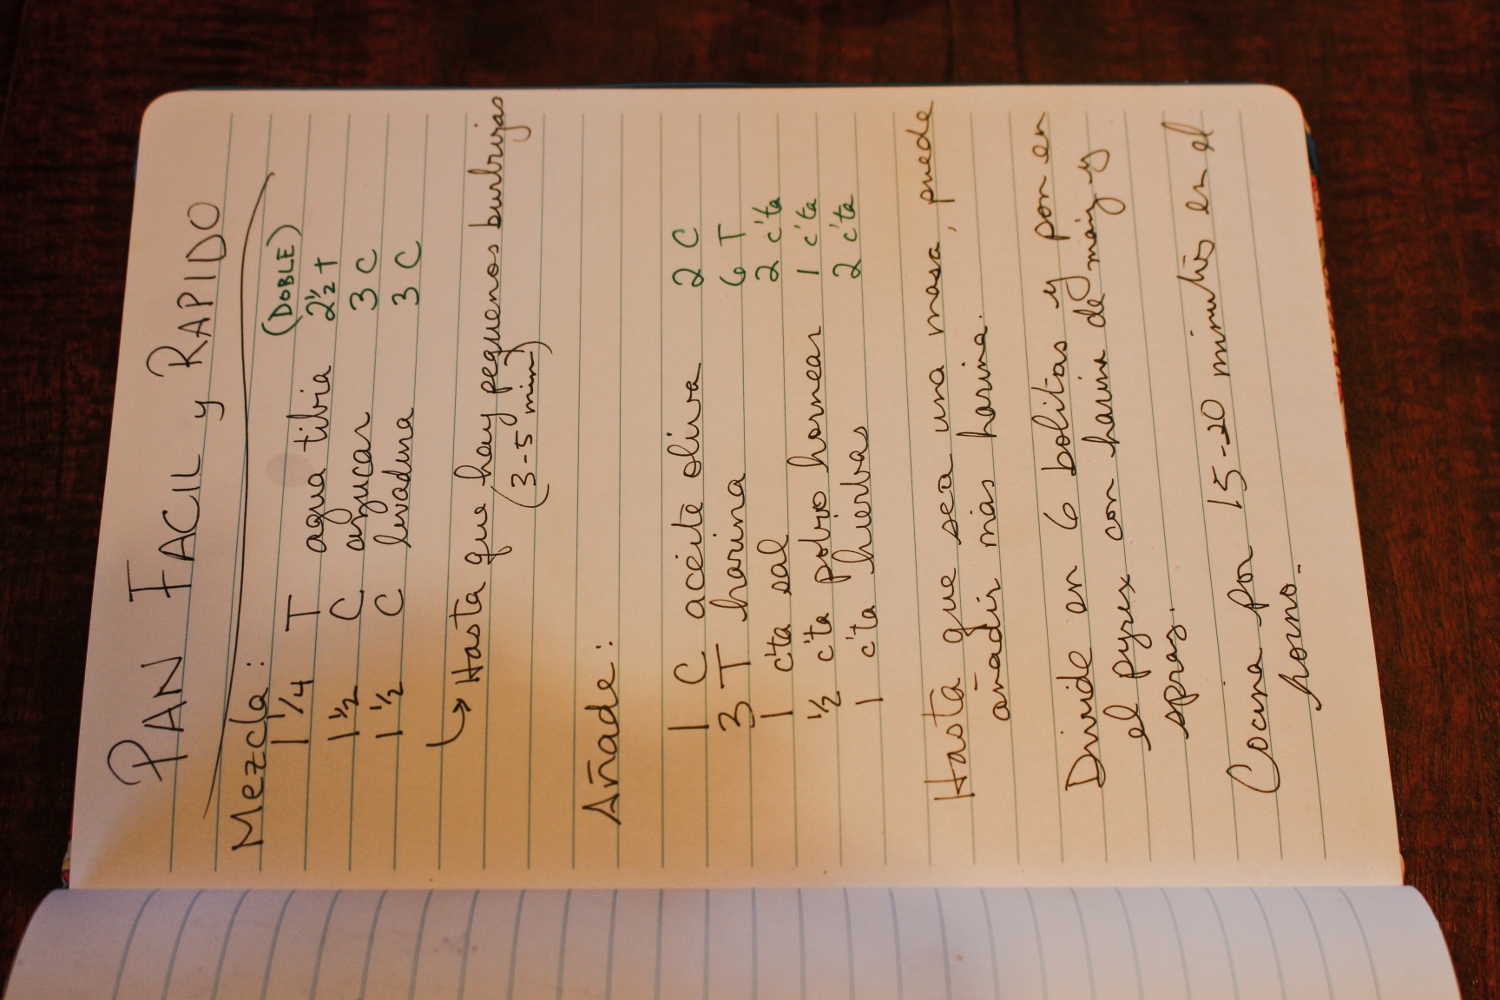 PAN FACIL y RAPIDO
Mezcla: (DOBLE)
1 1/4 T agua tibia 2 1/2 T
1 1/2 C azucar 3 C
1 1/2 C levadura 3 C
↳ Hasta que hay pequenos burbujas
(3-5 min)
Añade:
1 C aceite oliva 2 C
3 T harina 6 T
1 c'ta sal 2 c'ta
1/2 c'ta polvo hornear 1 c'ta
1 c'ta hierbas 2 c'ta
Hasta que sea una masa, puede
añadir más harina.
Divide en 6 bolitas y pon en
el pyrex con harina de maiz y
spray.
Cocina por 15-20 minutos en el
horno.